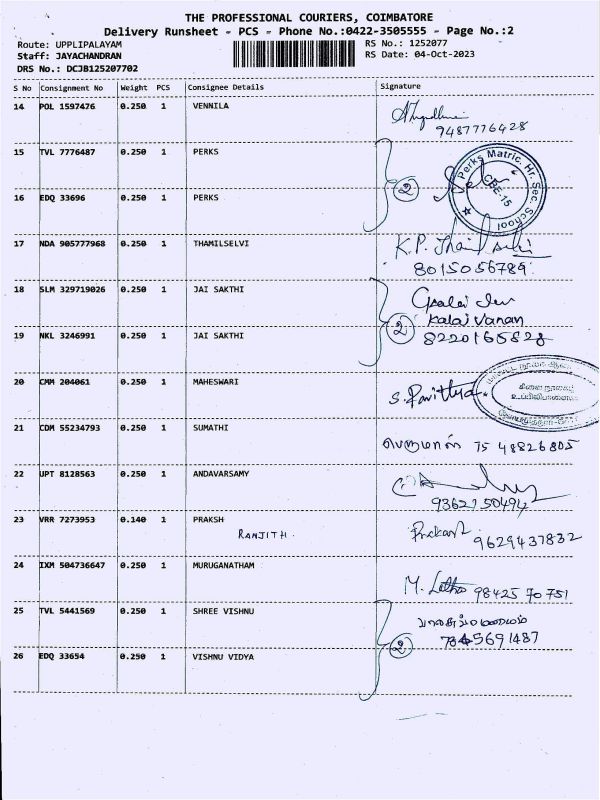 THE PROFESSIONAL COURIERS, COIMBATORE
Delivery Runsheet - PCS - Phone No.:0422-3505555 - Page No.:2
Route: UPPLIPALAYAM RS No.: 1252077
Staff: JAYACHANDRAN RS Date: 04-Oct-2023
DRS No.: DCJB125207702
S No Consignment No Weight PCS Consignee Details Signature
14 POL 1597476 0.250 1 VENNILA
9487776428
15 TVL 7776487 0.250 1 PERKS
Perks Matric. Hr. Sec. School
CBE-15
2
16 EDQ 33696 0.250 1 PERKS
17 NDA 905777968 0.250 1 THAMILSELVI K.P.
8015056789
18 SLM 329719026 0.250 1 JAI SAKTHI
Kalai Vanan
2
19 NKL 3246991 0.250 1 JAI SAKTHI 8220165828
20 CMM 204061 0.250 1 MAHESWARI S. Pavithra
21 CDM 55234793 0.250 1 SUMATHI பெருமாள் 75 48826805
22 UPT 8128563 0.250 1 ANDAVARSAMY
9362150494
23 VRR 7273953 0.140 1 PRAKSH Prakash 9629437832
RANJITH.
24 IXM 504736647 0.250 1 MURUGANATHAM M. Latha 98425 70751
25 TVL 5441569 0.250 1 SHREE VISHNU
7845691487
2
26 EDQ 33654 0.250 1 VISHNU VIDYA